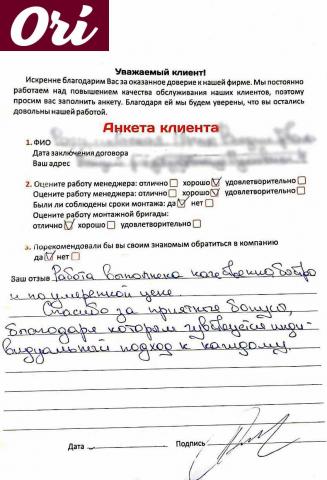 Ori
Уважаемый клиент!
Искренне благодарим Вас за оказанное доверие к нашей фирме. Мы постоянно
работаем над повышением качества обслуживания наших клиентов, поэтому
просим вас заполнить анкету. Благодаря ей мы будем уверены, что вы остались
довольны нашей работой.
Анкета клиента
1. ФИО
Дата заключения договора
Ваш адрес
2. Оцените работу менеджера: отлично хорошо удовлетворительно
Оцените работу менеджера: отлично хорошо удовлетворительно
Были ли соблюдены сроки монтажа: да нет
Оцените работу монтажной бригады:
отлично хорошо удовлетворительно
3. Порекомендовали бы вы своим знакомым обратиться в компанию
да нет
Ваш отзыв Работа выполнена качественно, быстро
и по умеренной цене.
Спасибо за приятные бонусы,
благодаря которым чувствуется инди-
видуальный подход к каждому.
Дата Подпись